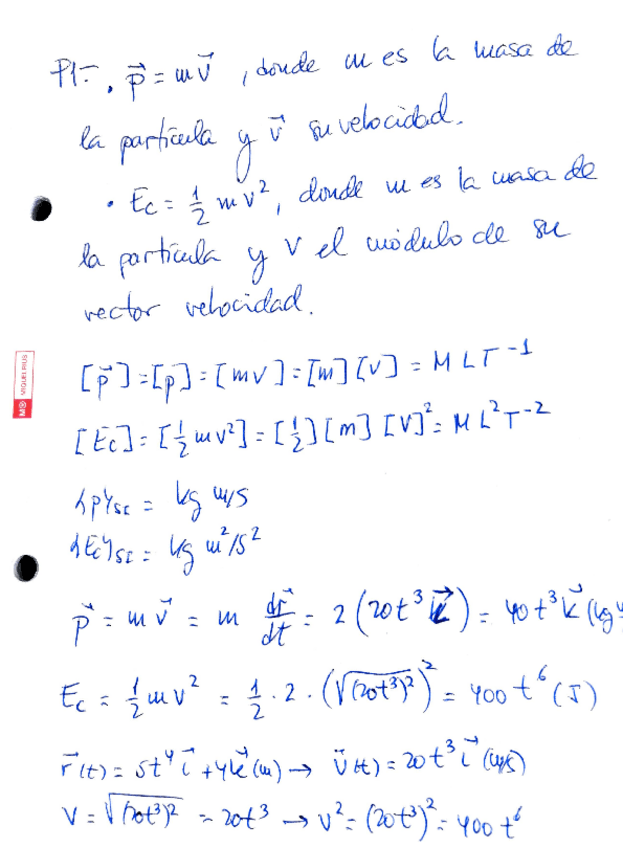 P1-. p⃗ = m v⃗ , donde m es la masa de
la partícula y v⃗ su velocidad.
• Ec = 1/2 m v², donde m es la masa de
la partícula y v el módulo de su
vector velocidad.
[p⃗] = [p] = [mv] = [m][v] = M L T⁻¹
[Ec] = [1/2 m v²] = [1/2][m][v]² = M L² T⁻²
{p}SI = kg m/s
{Ec}SI = kg m²/s²
p⃗ = m v⃗ = m dr⃗/dt = 2 (20t³ k⃗) = 40t³ k⃗ (kg
Ec = 1/2 m v² = 1/2 · 2 · (√(20t³)²)² = 400 t⁶ (J)
r⃗(t) = 5t⁴ i⃗ + 4k⃗ (m) → v⃗(t) = 20t³ i⃗ (m/s)
v = √(20t³)² = 20t³ → v² = (20t³)² = 400 t⁶
MIGUELRIUS